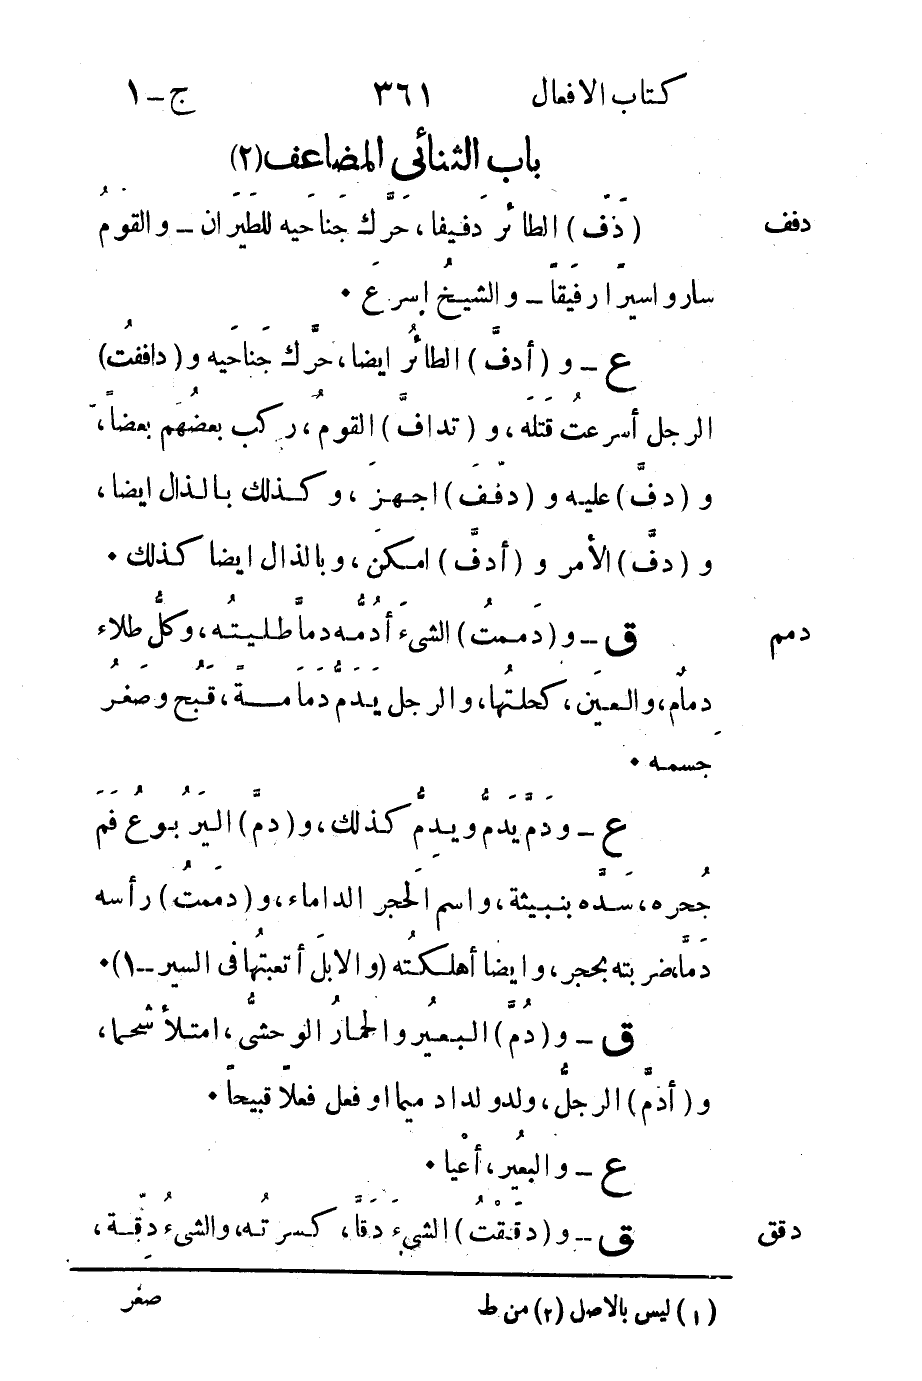 كتاب الافعال ٣٦١ ج-١
باب الثنائي المضاعف(٢)
دفف (دَفَّ) الطائرُ دَفيفا، حَرَّك جَناحَيه للطَيَران – والقومُ
سارو اسيرًا رَفيقاً – والشيخُ إسرَع •
ع – و (أدفَّ) الطائرُ ايضا، حرَّك جَناحَيه و (داففتُ)
الرجل أسرعتُ قتلَه، و (تدافَّ) القومُ، ركب بعضُهم بعضاً،
و (دفَّ) عليه و (دفّفَ) اجهزَ، وكذلك بالذال ايضا،
و (دفَّ) الأمر و (أدفَّ) امكنَ، وبالذال ايضا كذلك •
دمم ق – و (دَممتُ) الشيءَ أدُمُّه دماًّ طليتُه، وكلُّ طلاء
دمامٌ، والعينَ، كحلتُها، والرجل يَدَمُّ دَمَامةً، قَبُح وصَغرُ
جسمه •
ع – ودَمَّ يَدَمُّ ويدِمُّ كذلك، و (دمَّ) اليَربوعُ فَمَ
جُحره، سَدَّه بنبيثة، واسم الَحجر الداماء، و (دمَمتُ) رأسه
دَمّاً، ضربته بحجر، وايضا أهلكتُه (والابلَ أتعبتُها فى السير –١)•
ق – و (دُمَّ) البعيُر والحمارُ الوحشيُّ، امتلأ شحما،
و (أدمَّ) الرجلُ، ولدو لداد ميما او فعل فعلاً قبيحاً •
ع – والبعُير، أعْيا •
دقق ق – و (دقَقْتُ) الشيءَ دَقاًّ، كسرتُه، والشيءُ دِقّة،
(١) ليس بالاصل (٢) من ط صغُر